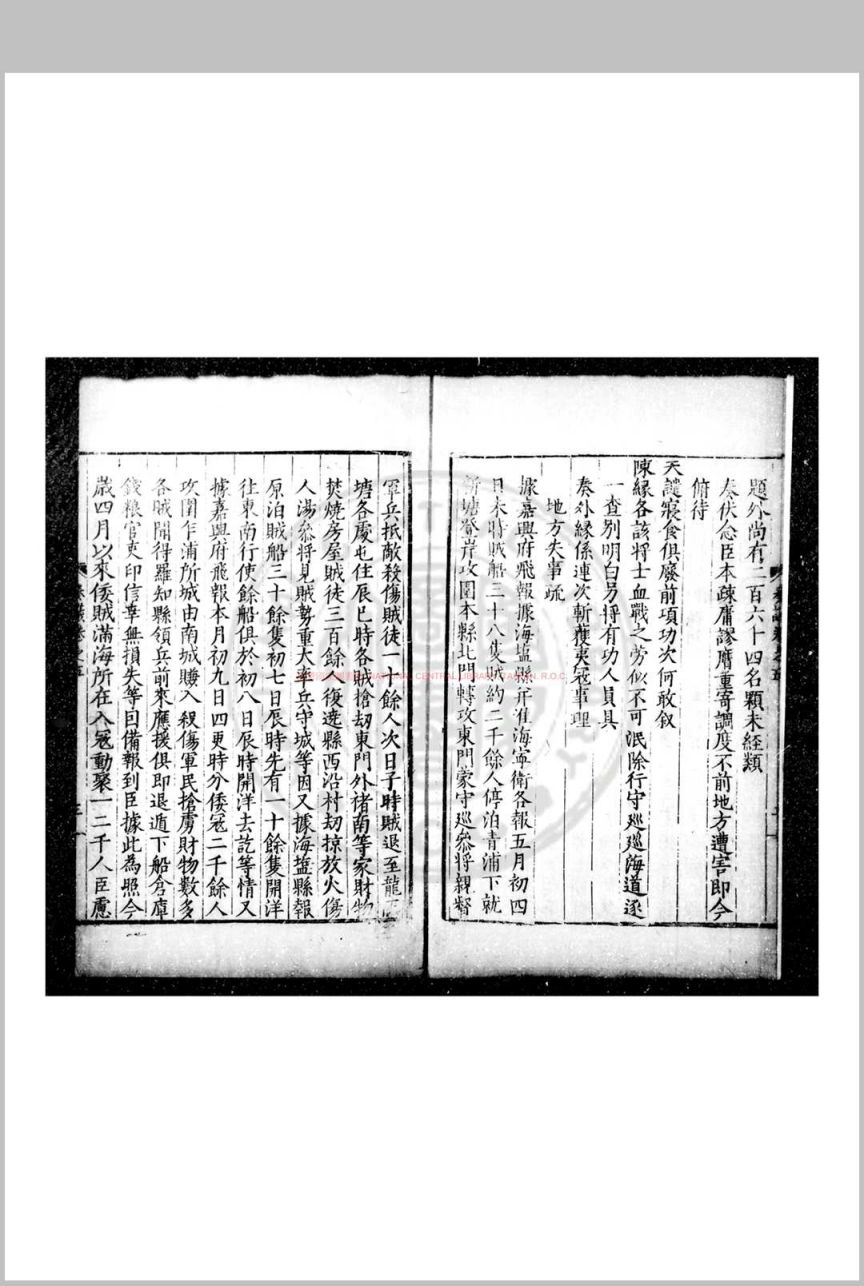 題外尚有二百六十四名顆未經類
奏伏念臣本疎庸謬膺重寄調度不前地方遭害即今
俯待
天譴寢食俱廢前項功次何敢叙
陳緣各該將士血戰之勞似不可泯除行守廵廵海道逐
一查別明白另將有功人員具
奏外緣係連次斬獲夷寇事理
地方失事疏
據嘉興府飛報據海塩縣并准海寧衛各報五月初四
日未時賊船三十八隻賊約二千餘人停泊青浦下就
塘登岸攻圍本縣北門轉攻東門蒙守廵叅將親督
軍兵抵敵殺傷賊徒一十餘人次日子時賊退至龍王
塘各處屯住辰巳時各賊搶劫東門外褚南等家財物
焚燒房屋賊徒三百餘人復遶縣西沿村劫掠放火傷
人湯叅將見賊勢重大率兵守城等因又據海塩縣報
原泊賊船三十餘隻初七日辰時先有一十餘隻開洋
往東南行使餘船俱於初八日辰時開洋去訖等情又
據嘉興府飛報本月初九日四更時分倭寇二千餘人
攻圍乍浦所城由南城賺入殺傷軍民搶虜財物數多
各賊聞得羅知縣領兵前來應援俱即退遁下船倉庫
錢粮官吏印信幸無損失等因備報到臣據此為照今
歲四月以來倭賊滿海所在入寇動聚一二千人臣慮
NATIONAL CENTRAL LIBRARY, TAIWAN, R.O.C.